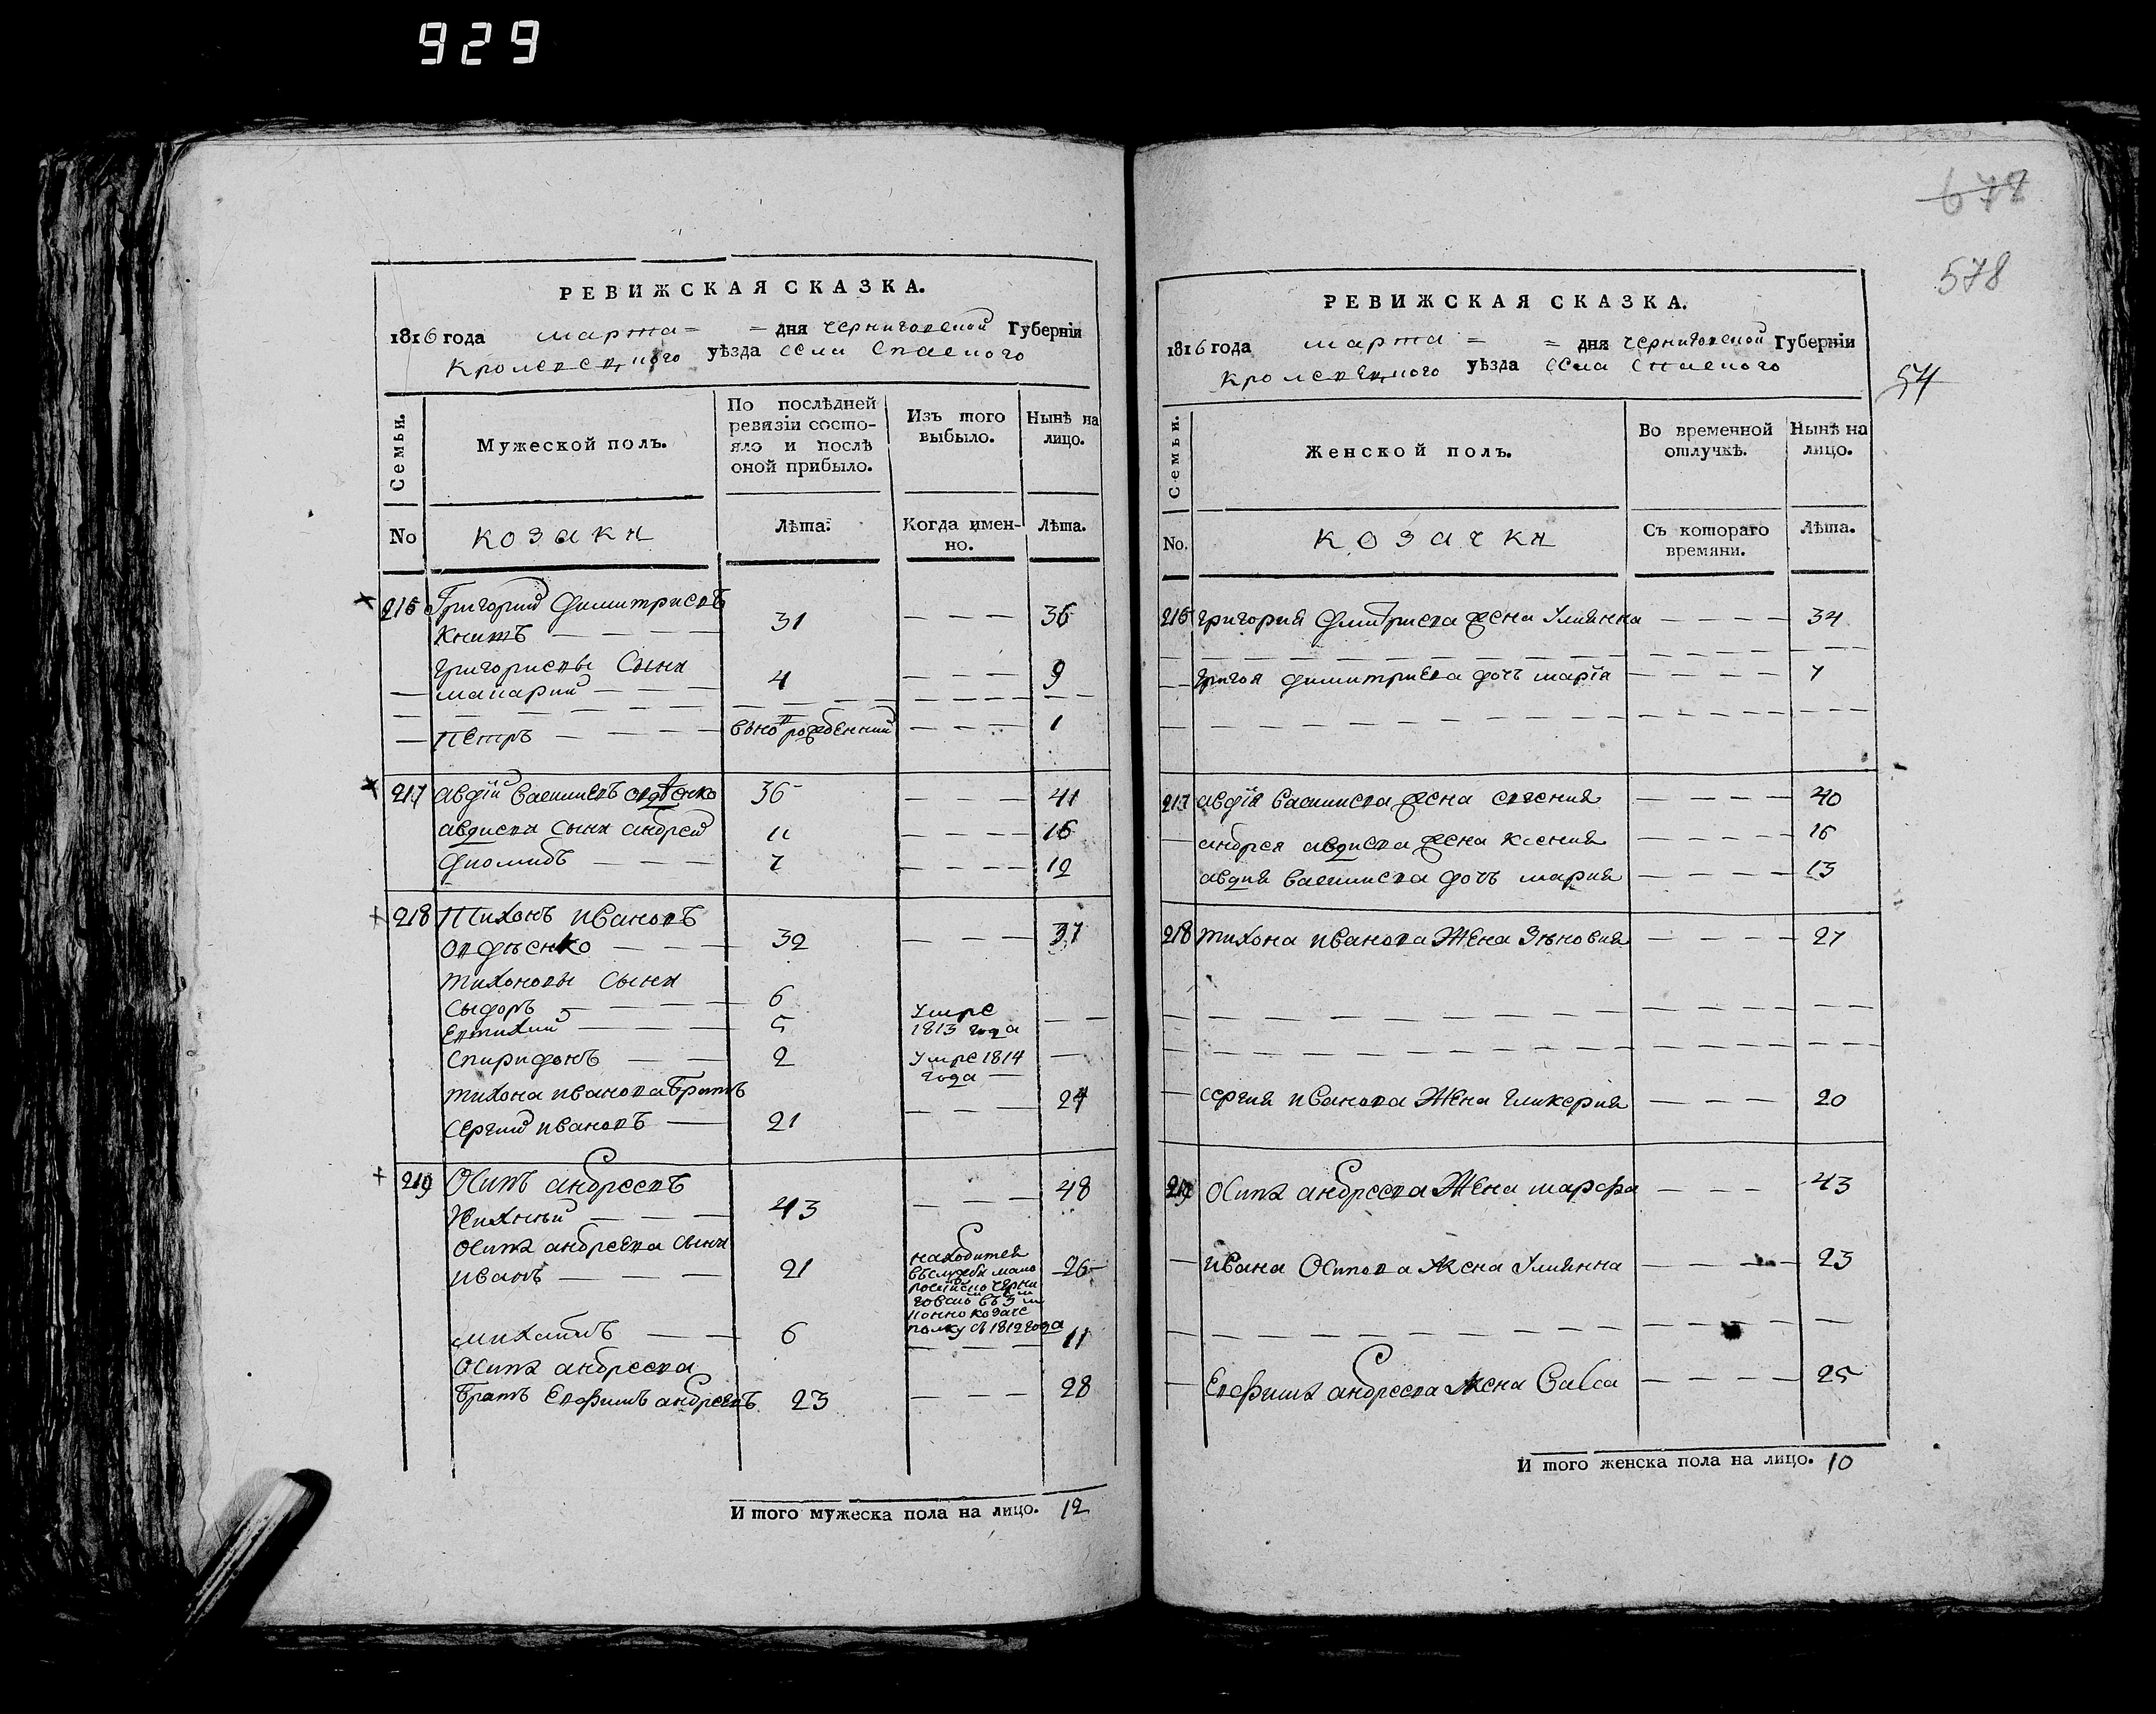 929
678
578
54
РЕВИЖСКАЯ СКАЗКА.
1816 года марта = = дня черниговской Губерніи
Кролевецкого уѣзда села Спаского
Семьи.
Мужеской полъ.
По послѣдней ревизіи состо-
яло и послѣ
оной прибыло.
Изъ того
выбыло.
Нынѣ на
лицо.
No
козаки
Лѣта.
Когда имен-
но.
Лѣта.
216 Григорий Димитриевъ
31 — — — 36
Григориевы Сыни
макарий — — — 4 — — — 9
Петръ — — — рожденний — — — 1
217 авдій Василиевъ 36 — — — 41
авдиеви Сыни андрей 11 — — — 16
Диомидъ — — — 7 — — — 12
218 Тихонъ ивановъ
Овдѣенко — — — 32 — — — 37
тихоновы Сыни
Сыдоръ — — — 6 Умре
Евтихий — — — 5 1813 года — —
Спиридонъ — — 2 Умре 1814 года —
тихона иванова братъ
Сергий ивановъ — 21 — — — 24
219 Осипъ андреевъ
43 — — — 48
Осипа андреева Сыни
иванъ — — — 21 находится
въ службѣ мало
росийско Черни
говско въ 3 м
конно козаче
полку съ 1812 года 26
михаилъ — — 6 — — — 11
Осипа андреева
братъ Евфимъ андреевъ 23 — — — 28
И того мужеска пола на лицо. 12
РЕВИЖСКАЯ СКАЗКА.
1816 года марта = = дня черниговской Губерніи
Кролевецкого уѣзда села Спаского
Семьи.
Женской полъ.
Во временной
отлучкѣ.
Нынѣ на
лицо.
No.
козачки
Съ котораго
времяни.
Лѣта.
216 григория Дмитриева жена Улиянна — — — — 34
димитриева дочь марія — — — — 7
217 авдія Василиева жена Евгения — — — — 40
андрея авдиева жена Ксения — — — — 16
авдия Василиева дочь мария — — — — 13
218 тихона иванова Жена Зѣновия — — — — 27
Сергия иванова Жена гликерия — — — 20
219 Осипа андреева Жена марфа — — — 43
ивана Осипова Жена Улиянна — — — — 23
Евфима андреева Жена — — — — 25
И того женска пола на лицо. 10